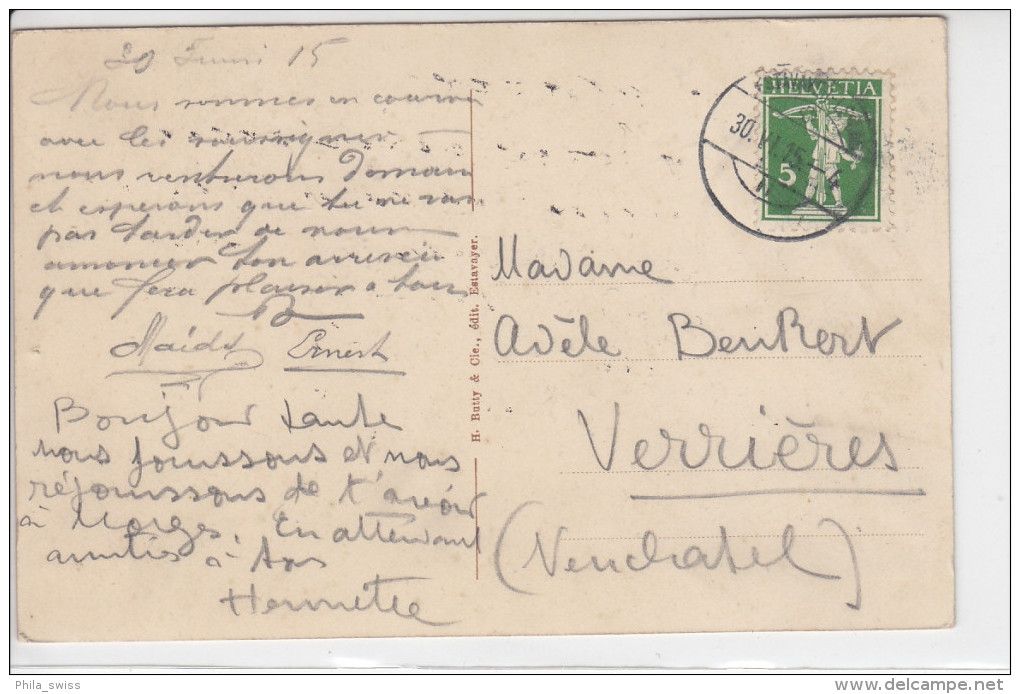 29 Juin 15
Nous sommes en course
avec les
nous rentrerons Demain
et esperons que tu ne vas
pas tarder de nous
annoncer ton arrivée
que fera plaisir a tous
Ernest
Bonjour tante
nous jouissons et nous
réjouissons de t'avoir
à Morges. En attendant
amitiés à tous
Henriette
H. Butty & Cie., édit. Estavayer.
HELVETIA
5
30.VI.15
Madame
Adèle Benkert
Verrières
(Neuchatel)
Phila_swiss
delcampe.net